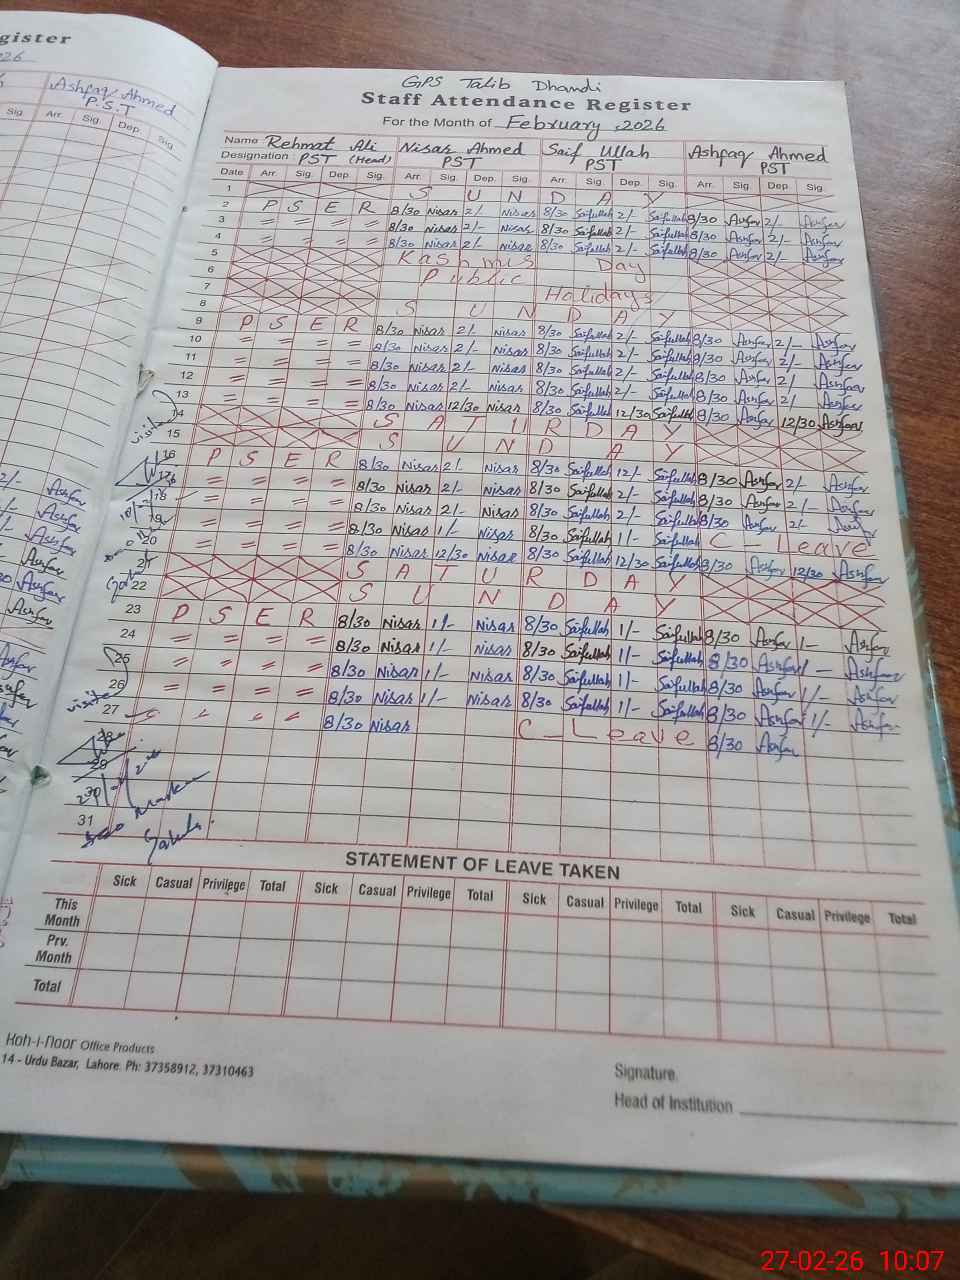 gister
026
Ashfaq Ahmed
P.S.T
Sig. Arr. Sig. Dep. Sig
GPS Talib Dhandi
Staff Attendance Register
For the Month of February, 2026
Name Rehmat Ali Nisar Ahmed Saif Ullah Ashfaq Ahmed
Designation: PST (Head) PST PST PST
Date Arr. Sig. Dep. Sig. Arr. Sig. Dep. Sig. Arr. Sig. Dep. Sig. Arr. Sig. Dep. Sig.
1 S U N D A Y
2 P S E R 8/30 Nisar 2/- Nisar 8/30 Saifullah 2/- Saifullah 8/30 Ashfaq 2/- Ashfaq
3 = = = = 8/30 Nisar 2/- Nisar 8/30 Saifullah 2/- Saifullah 8/30 Ashfaq 2/- Ashfaq
4 = = = = 8/30 Nisar 2/- Nisar 8/30 Saifullah 2/- Saifullah 8/30 Ashfaq 2/- Ashfaq
5 Kashmir Day
6 Public
7 Holidays
8 S U N D A Y
9 P S E R 8/30 Nisar 2/- Nisar 8/30 Saifullah 2/- Saifullah 8/30 Ashfaq 2/- Ashfaq
10 = = = = 8/30 Nisar 2/- Nisar 8/30 Saifullah 2/- Saifullah 8/30 Ashfaq 2/- Ashfaq
11 = = = = 8/30 Nisar 2/- Nisar 8/30 Saifullah 2/- Saifullah 8/30 Ashfaq 2/- Ashfaq
12 = = = = 8/30 Nisar 2/- Nisar 8/30 Saifullah 2/- Saifullah 8/30 Ashfaq 2/ Ashfaq
13 = = = = 8/30 Nisar 12/30 Nisar 8/30 Saifullah 12/30 Saifullah 8/30 Ashfaq 12/30 Ashfaq
14 S A T U R D A Y
visit
15 S U N D A Y
16 P S E R 8/30 Nisar 2/- Nisar 8/30 Saifullah 12/- Saifullah 8/30 Ashfaq 2/- Ashfaq
17 = = = = 8/30 Nisar 2/- Nisar 8/30 Saifullah 2/- Saifullah 8/30 Ashfaq 2/- Ashfaq
18 = = = = 8/30 Nisar 2/- Nisar 8/30 Saifullah 2/- Saifullah 8/30 Ashfaq 2/-
19 = = = = 8/30 Nisar 1/- Nisar 8/30 Saifullah 1/- Saifullah C - Leave
20 = = = = 8/30 Nisar 12/30 Nisar 8/30 Saifullah 12/30 Saifullah 8/30 Ashfaq 12/30 Ashfaq
21 S A T U R D A Y
22 S U N D A Y
23 P S E R 8/30 Nisar 1/- Nisar 8/30 Saifullah 1/- Saifullah 8/30 Ashfaq 1/- Ashfaq
24 = = = = 8/30 Nisar 1/- Nisar 8/30 Saifullah 1/- Saifullah 8/30 Ashfaq 1/- Ashfaq
25 = = = = 8/30 Nisar 1/- Nisar 8/30 Saifullah 1/- Saifullah 8/30 Ashfaq 1/- Ashfaq
26 = = = = 8/30 Nisar 1/- Nisar 8/30 Saifullah 1/- Saifullah 8/30 Ashfaq 1/- Ashfaq
visit
27 " " " " 8/30 Nisar C - Leave 8/30 Ashfaq
28
29
30
31
STATEMENT OF LEAVE TAKEN
Sick Casual Privilege Total Sick Casual Privilege Total Sick Casual Privilege Total Sick Casual Privilege Total
This Month
Prv. Month
Total
Koh-i-noor Office Products
14 - Urdu Bazar, Lahore. Ph: 37358912, 37310463
Signature.
Head of Institution
27-02-26 10:07